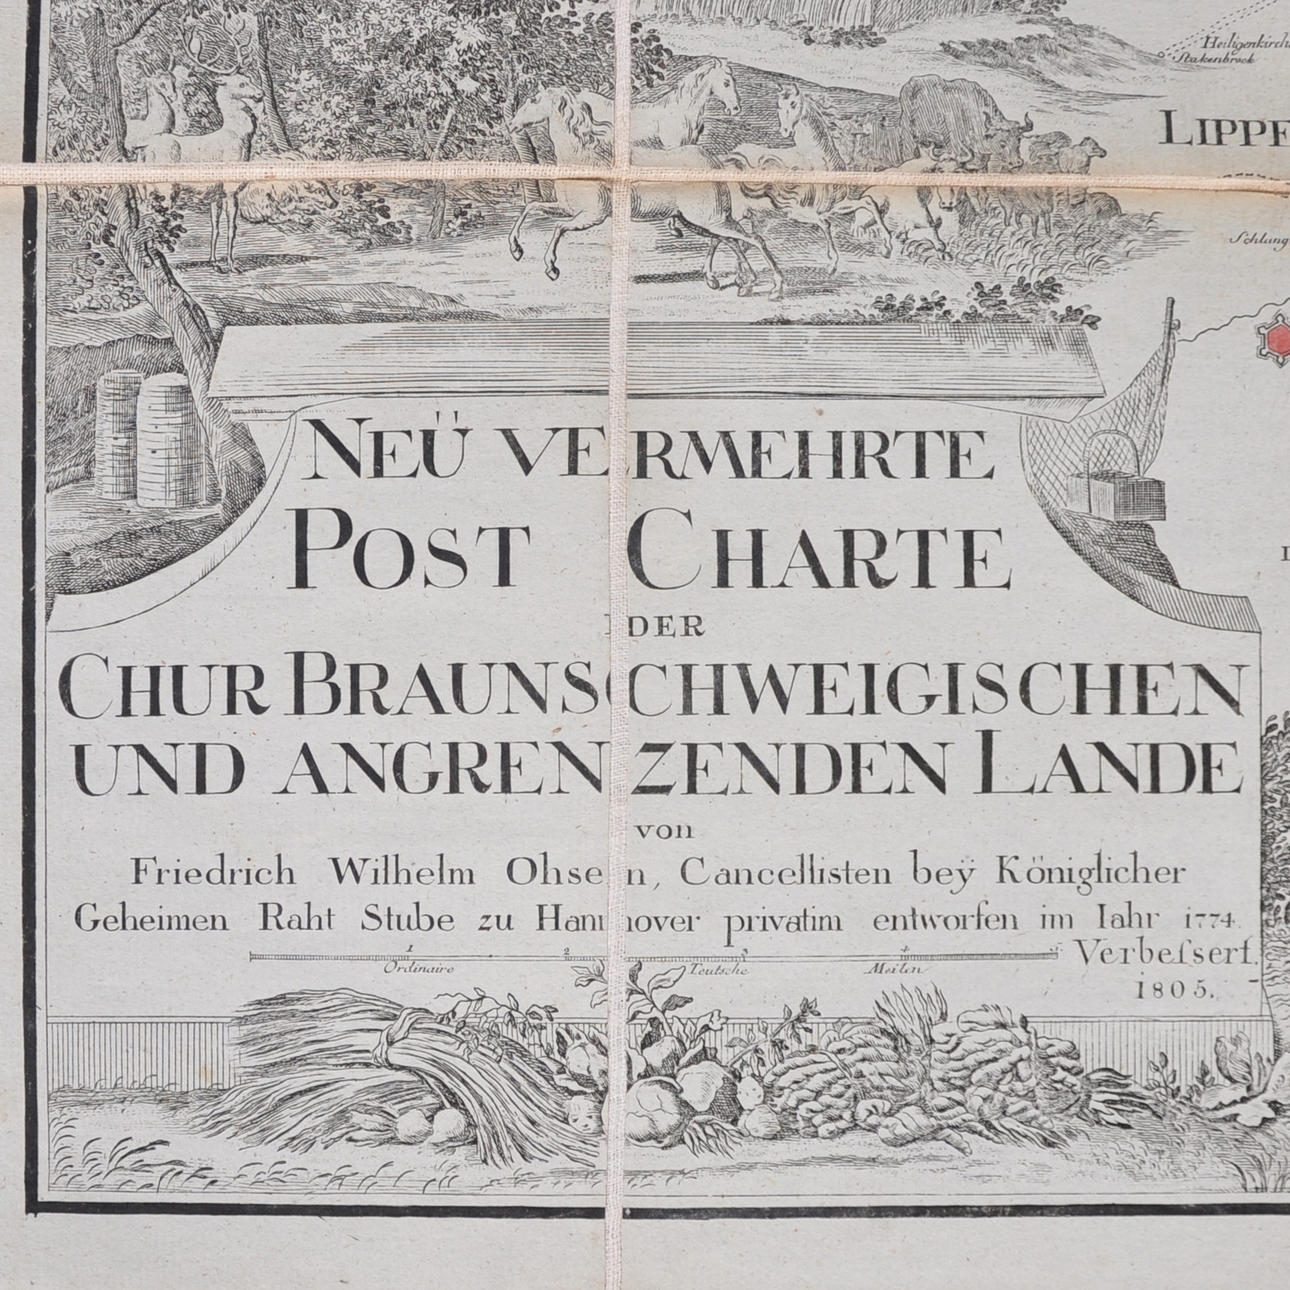 Heiligenkirch
Stakenbrock
LIPPE
Schlung
NEÜ VERMEHRTE
POST CHARTE
DER
CHUR BRAUNSCHWEIGISCHEN
UND ANGRENZENDEN LANDE
von
Friedrich Wilhelm Ohsen, Cancellisten beÿ Königlicher
Geheimen Raht Stube zu Hannover privatim entworfen im Iahr 1774.
1 2 3 4 5
Ordinaire Teutsche Meilen
Verbeſsert.
1805.